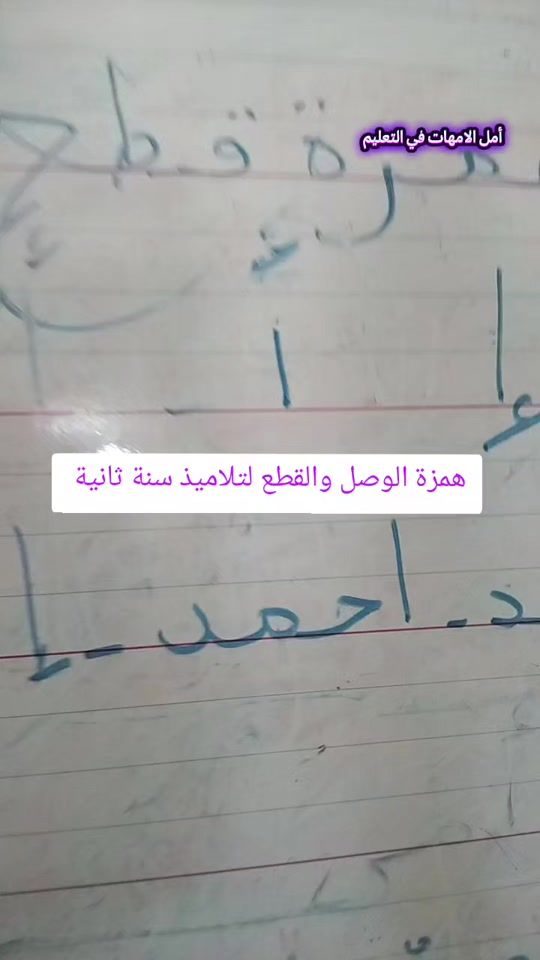 أمل الامهات في التعليم
قطع
إ أ
همزة الوصل والقطع لتلاميذ سنة ثانية
د - احمد - إ